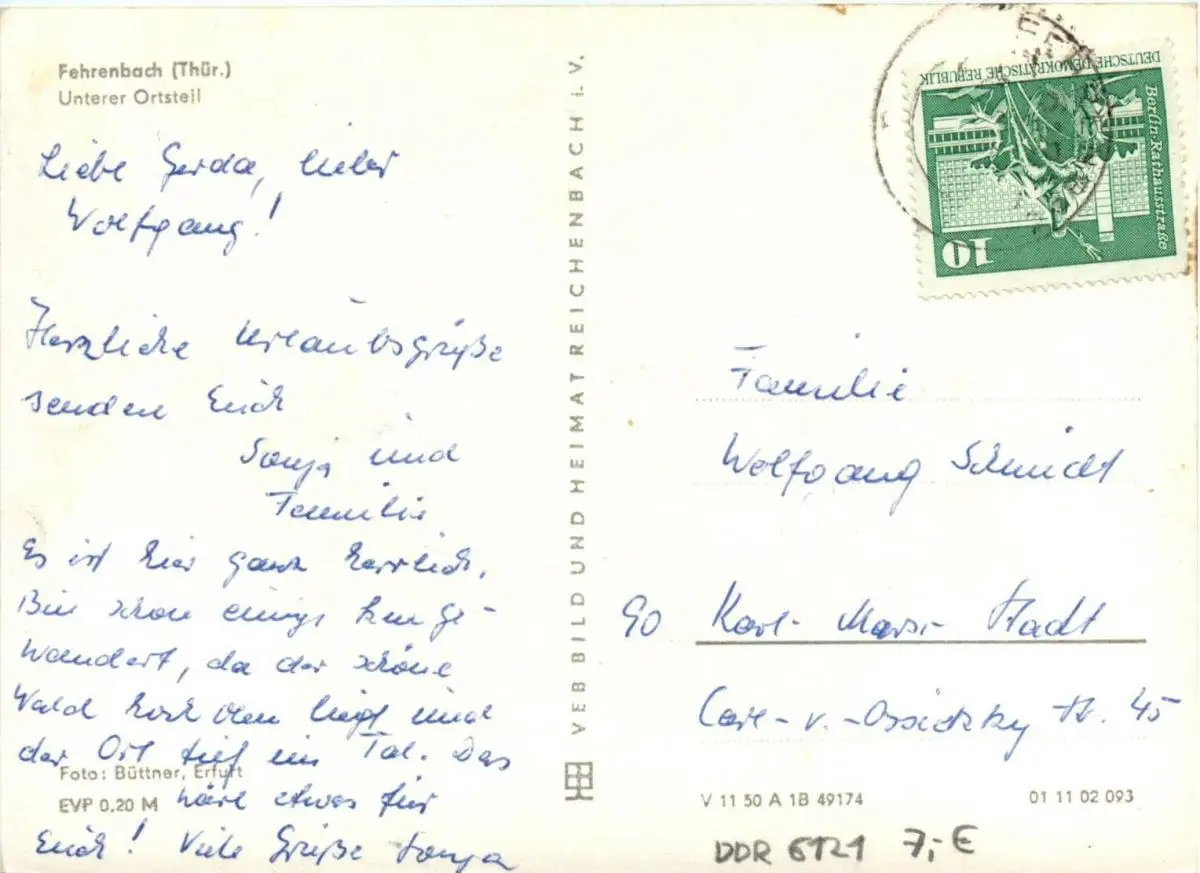 Fehrenbach (Thür.)
Unterer Ortsteil
Liebe Gerda, lieber
Wolfgang!
Herzliche Urlaubsgrüße
senden Euch
Sonja und
Familie
Es ist hier ganz herrlich.
Bin schon einige km ge-
wandert, da der schöne
Wald hoch oben liegt und
der Ort tief im Tal. Das
Foto: Büttner, Erfurt
wäre etwas für
EVP 0,20 M
Euch! Viele Grüße Sonja
VEB BILD UND HEIMAT REICHENBACH i. V.
DEUTSCHE DEMOKRATISCHE REPUBLIK
Berlin-Rathausstraße
10
Familie
Wolfgang Schmidt
90 Karl-Marx-Stadt
Carl-v.-Ossietzky St. 45
V 11 50 A 1B 49174
01 11 02 093
DDR 6121 7,- €